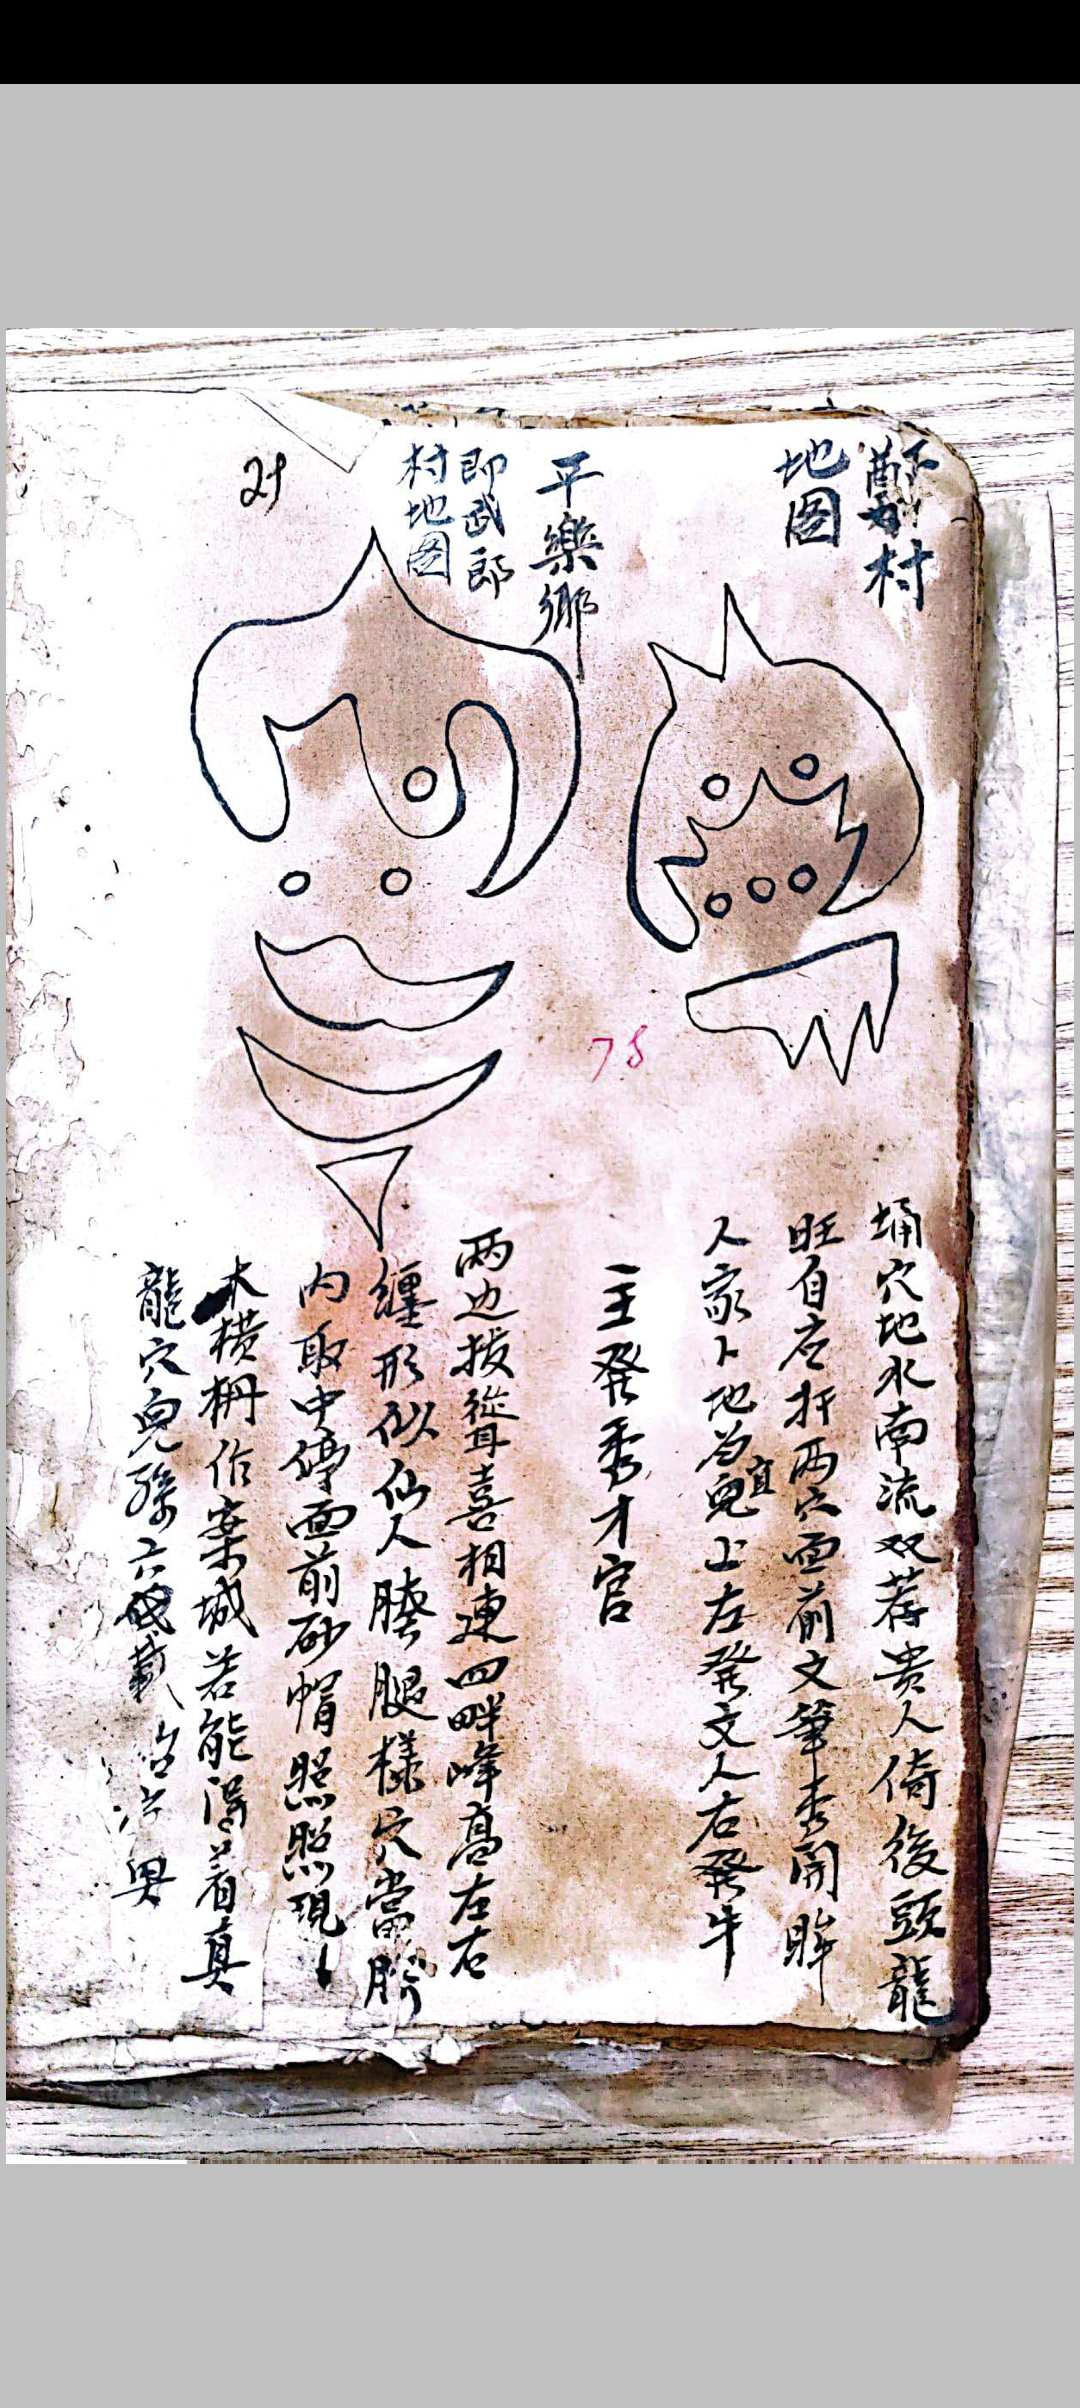 村
地图
平樂鄉
即武郎
村地图
21
75
埇穴地水南流双荐贵人倚後頭龍
旺自左扦两穴面前文筆秀開眸
人家卜地为宜兒上左發文人右發牛
主發秀才官
两边拔聳喜相連四畔峰高左右
纏形似仙人膀腿樣穴當
内取中停面前砂帽照照現
木横栅作案城若能得着真
龍穴兒孫六